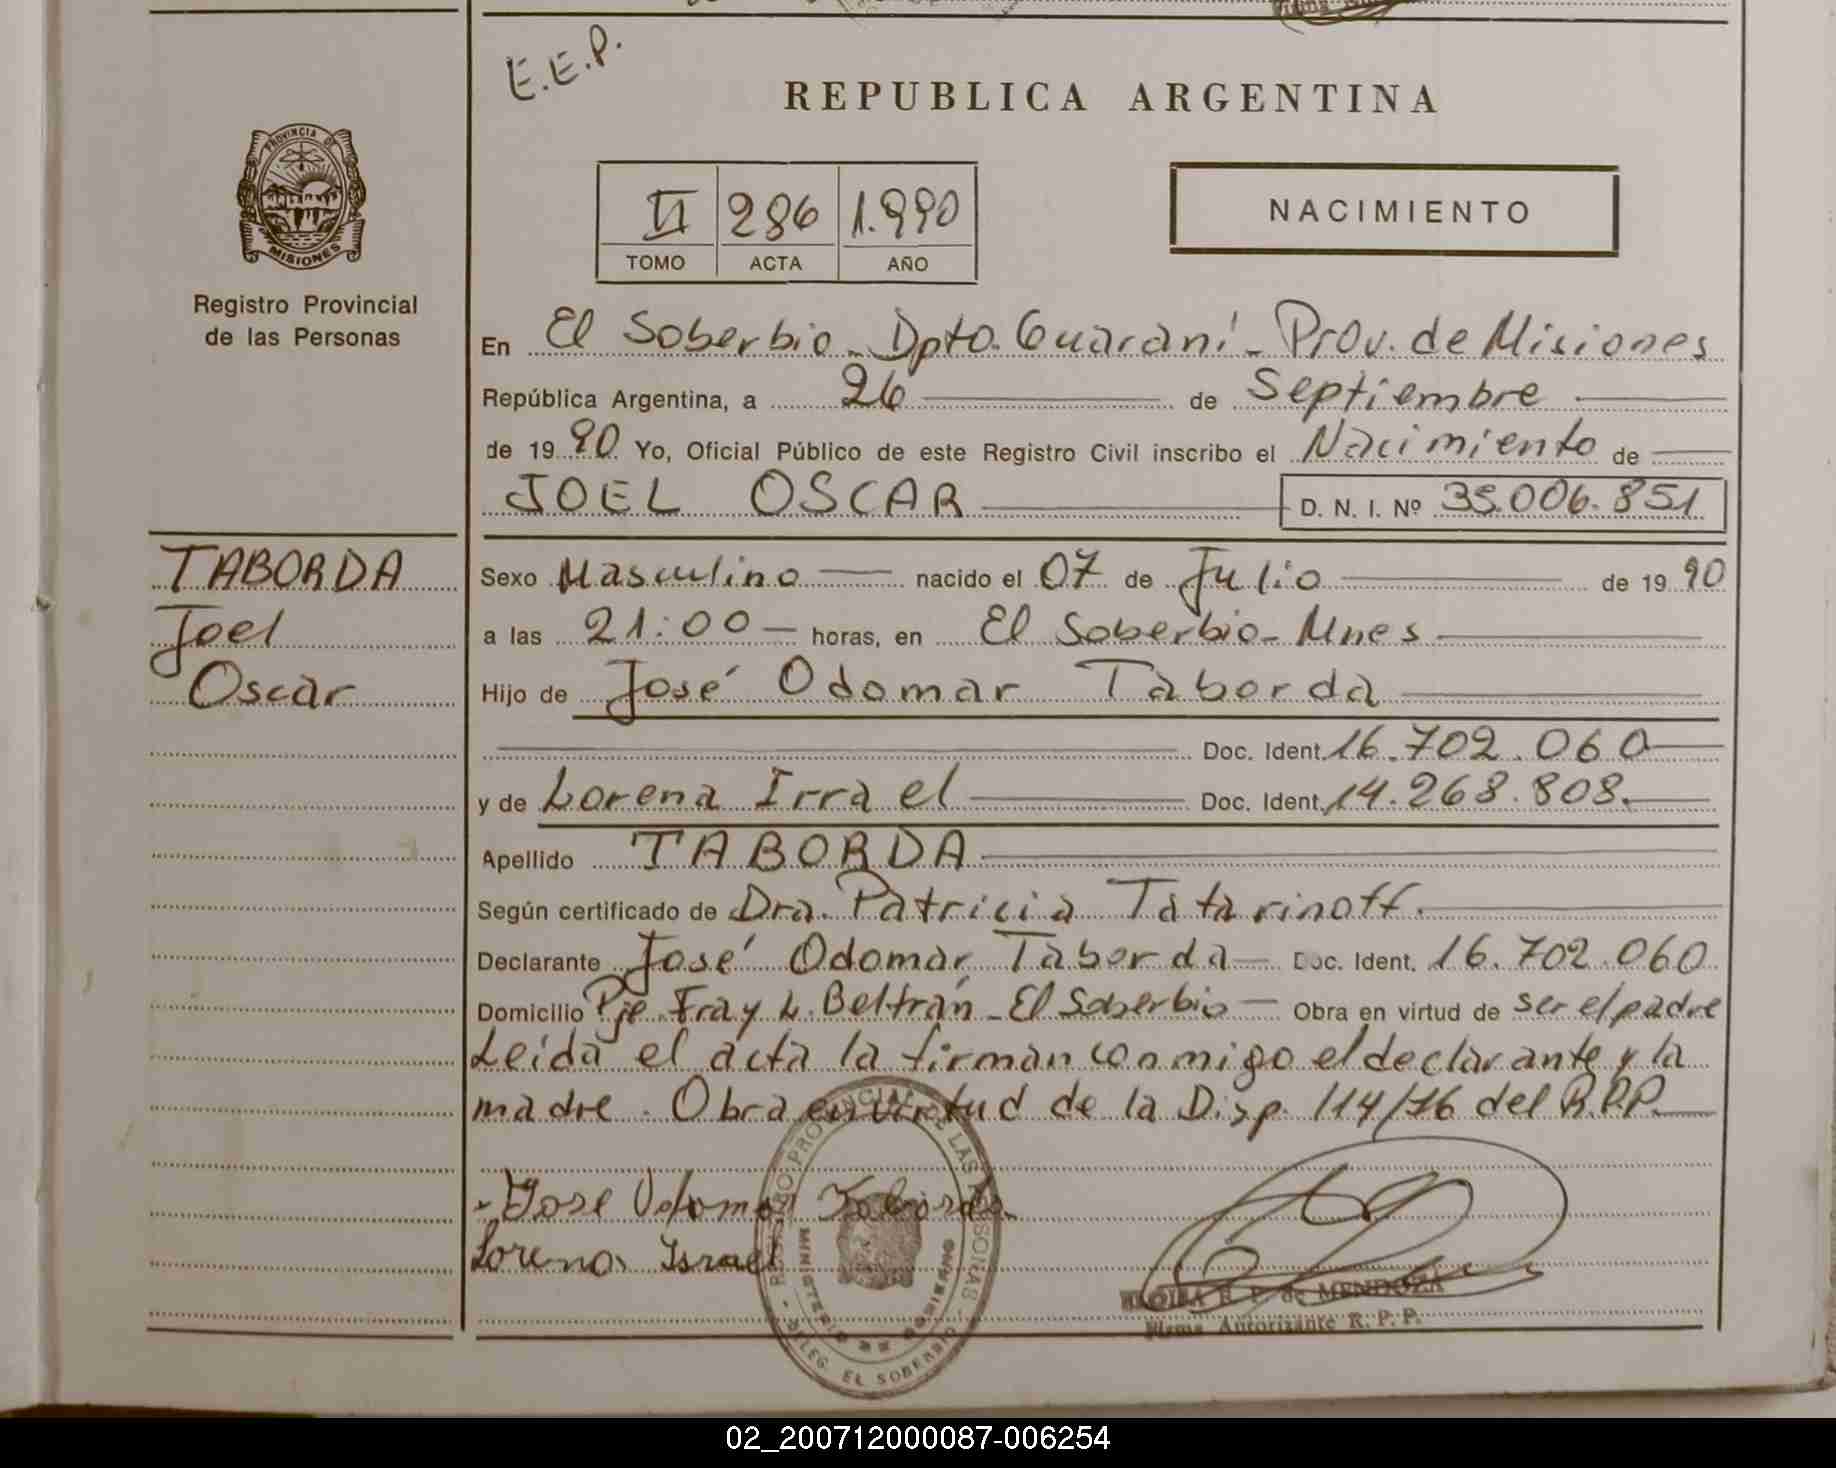 E.E.P.
REPUBLICA ARGENTINA
PROVINCIA DE
MISIONES
Registro Provincial
de las Personas
VI 286 1.990
TOMO ACTA AÑO
NACIMIENTO
En El Soberbio - Dpto. Guaraní - Prov. de Misiones
República Argentina, a 26 de Septiembre
de 19 90 Yo, Oficial Público de este Registro Civil inscribo el Nacimiento de
JOEL OSCAR D. N. I. Nº 35.006.851
TABORDA
Joel
Oscar
Sexo Masculino nacido el 07 de Julio de 19 90
a las 21:00 horas, en El Soberbio - Mnes
Hijo de José Odomar Taborda
Doc. Ident. 16.702.060
y de Lorena Irrael Doc. Ident. 14.268.808.
Apellido TABORDA
Según certificado de Dra. Patricia Tatarinoff.
Declarante José Odomar Taborda Doc. Ident. 16.702.060
Domicilio Pje. Fray L. Beltrán - El Soberbio Obra en virtud de ser el padre
Leída el acta la firman conmigo el declarante y la
madre. Obra en virtud de la Disp. 114/76 del R.P.P.
Jose Odomar Taborda
Lorena Israel
REGISTRO PROVINCIAL DE LAS PERSONAS
MINISTERIO DE GOBIERNO
DELEG. EL SOBERBIO
E. de MENDOZA
Firma Autorizante R. P. P.
02_200712000087-006254